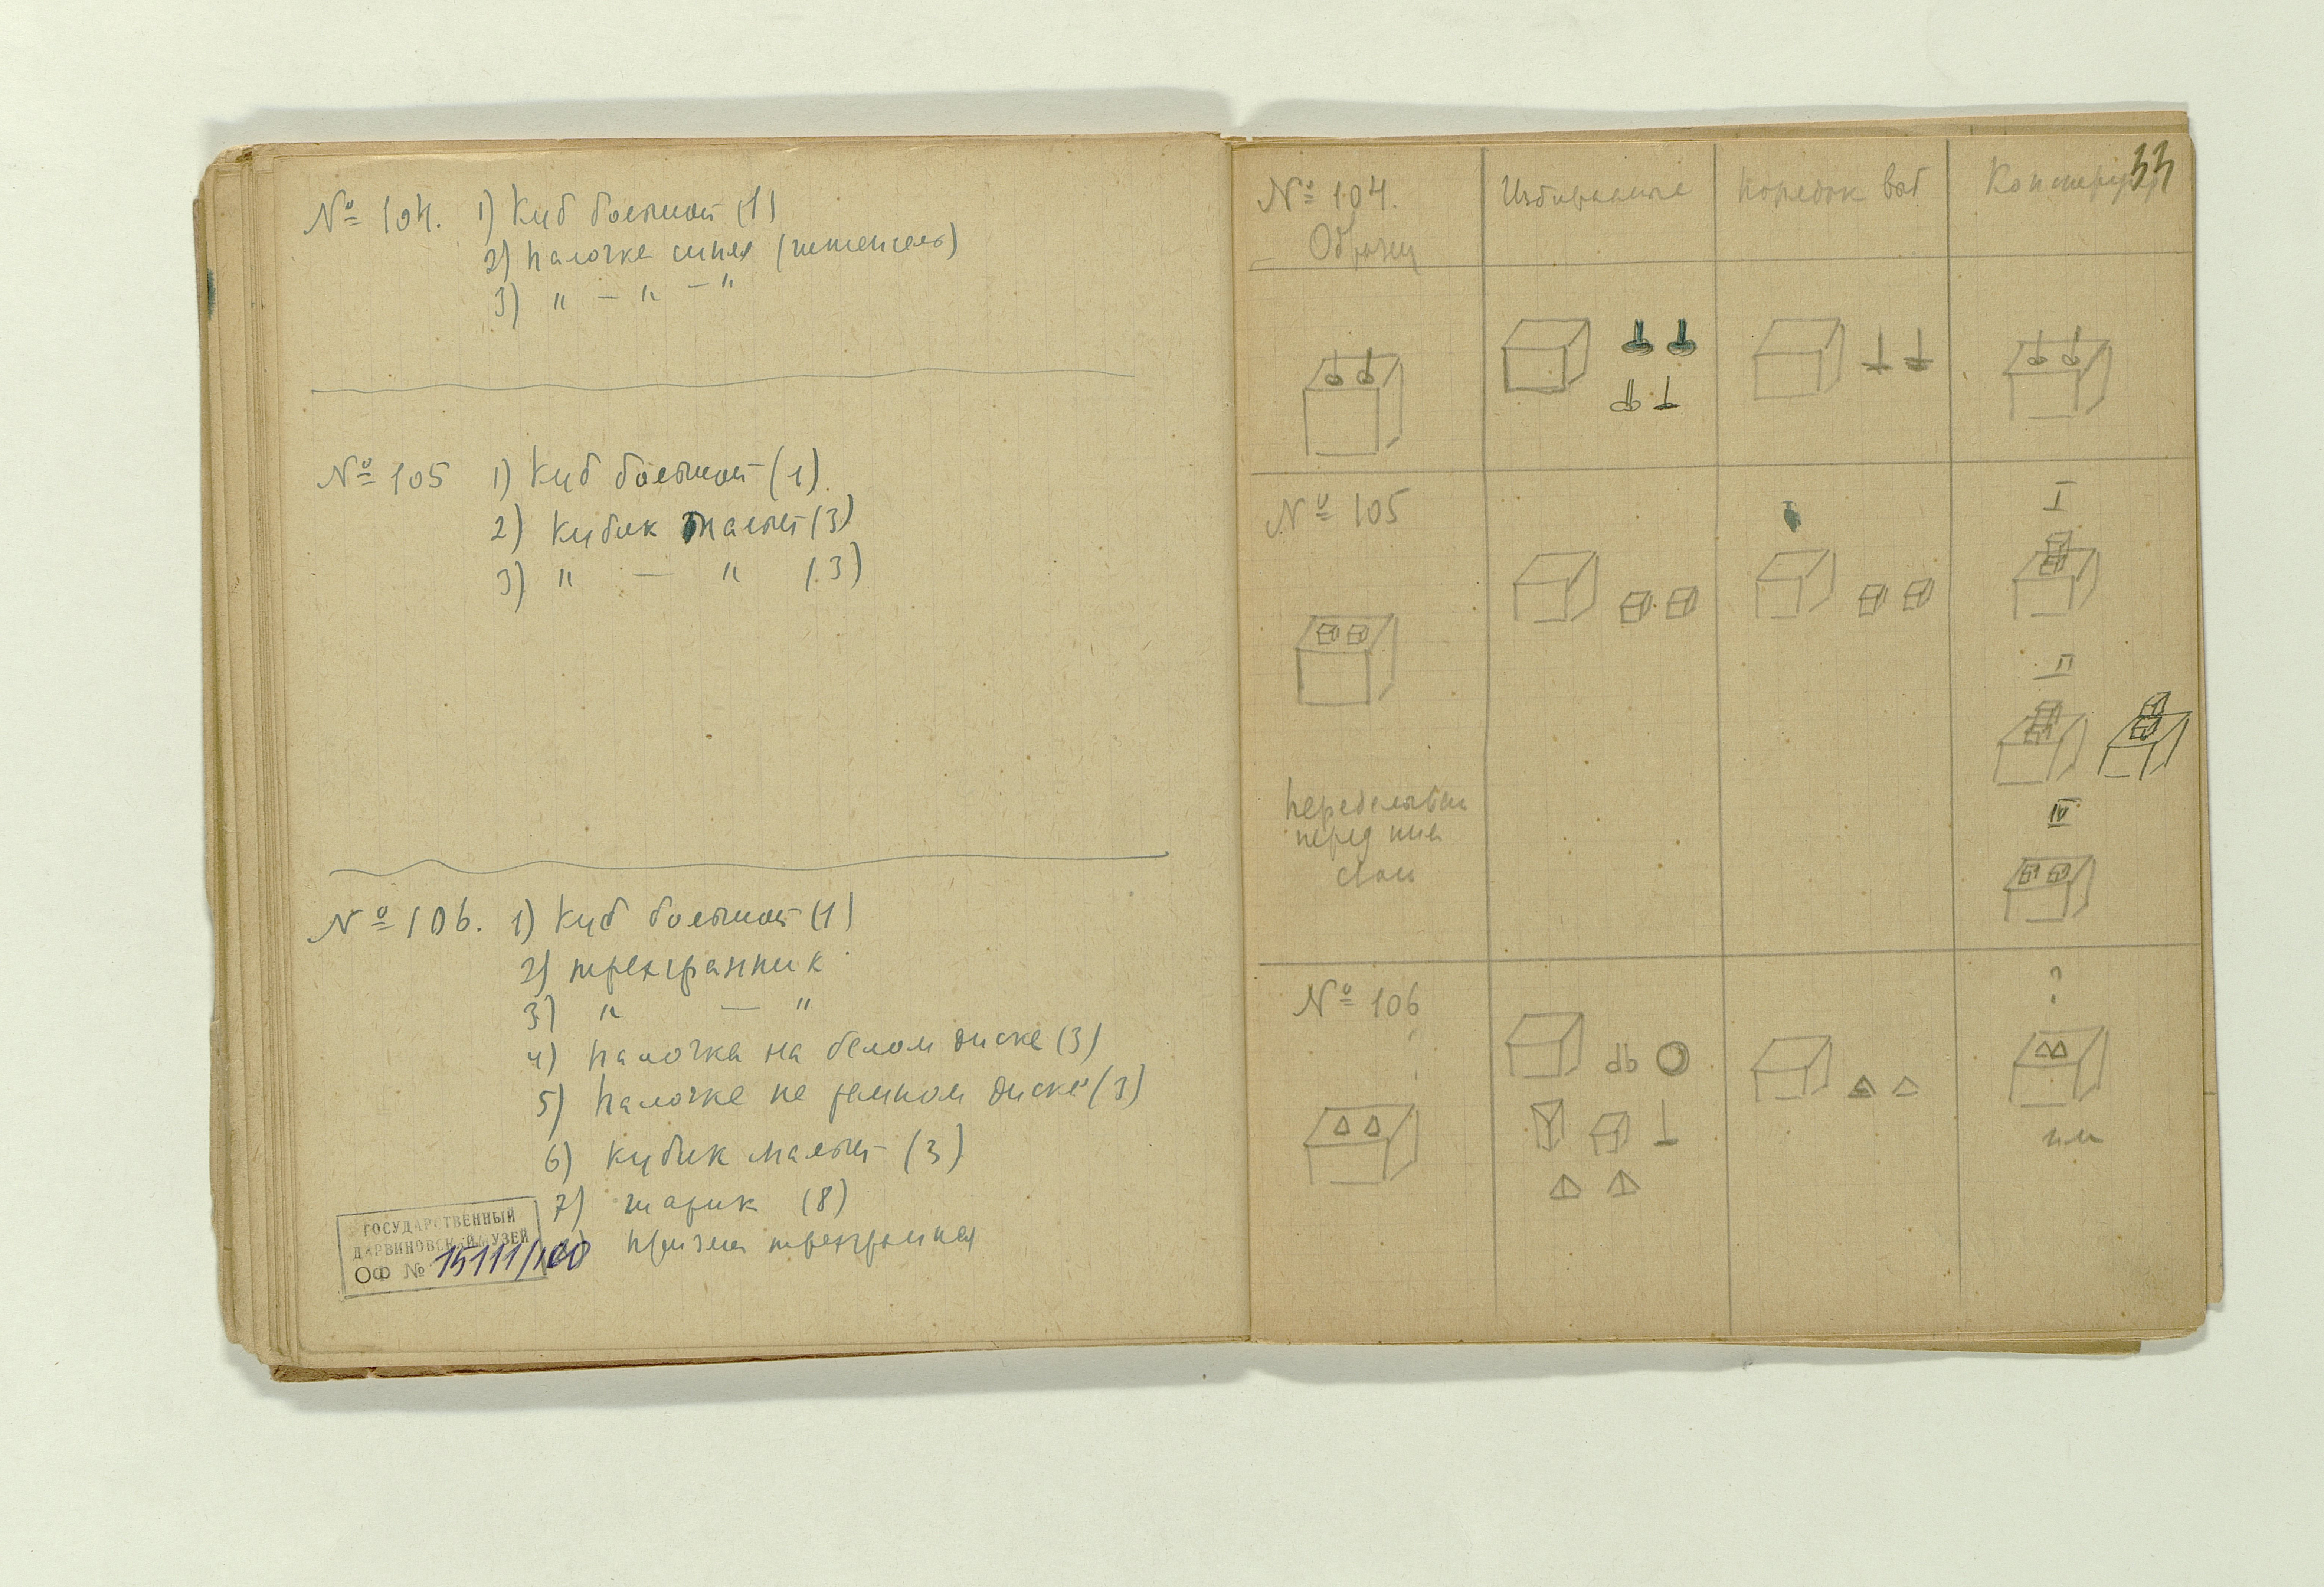 № 104. 1) Куб большой (1)
2) палочка синяя (штепсель)
3) " — " — "
№ 105 1) Куб большой (1)
2) Кубик малый (3)
3) " — " (3)
№ 106. 1) Куб большой (1)
2) трехгранник
3) " — "
4) палочка на белом диске (3)
5) палочка на темном диске (3)
6) кубик малый (3)
7) шарик (8)
призма трехгранная
ГОСУДАРСТВЕННЫЙ
ДАРВИНОВСКИЙ МУЗЕЙ
ОФ № 15111/100
33
№ 104.
Образец
Избирание
порядок выб
Конструкц
№ 105
I
II
перед
IV
№ 106
?